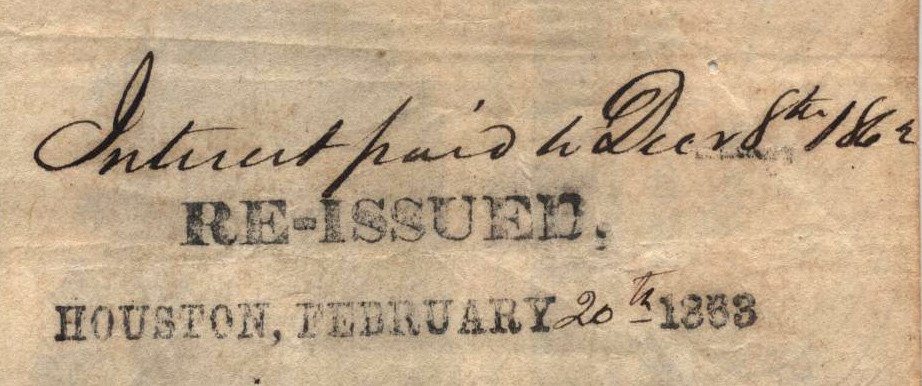 Interest paid to Decr 8th 1862
RE-ISSUED,
HOUSTON, FEBRUARY 20th 1863